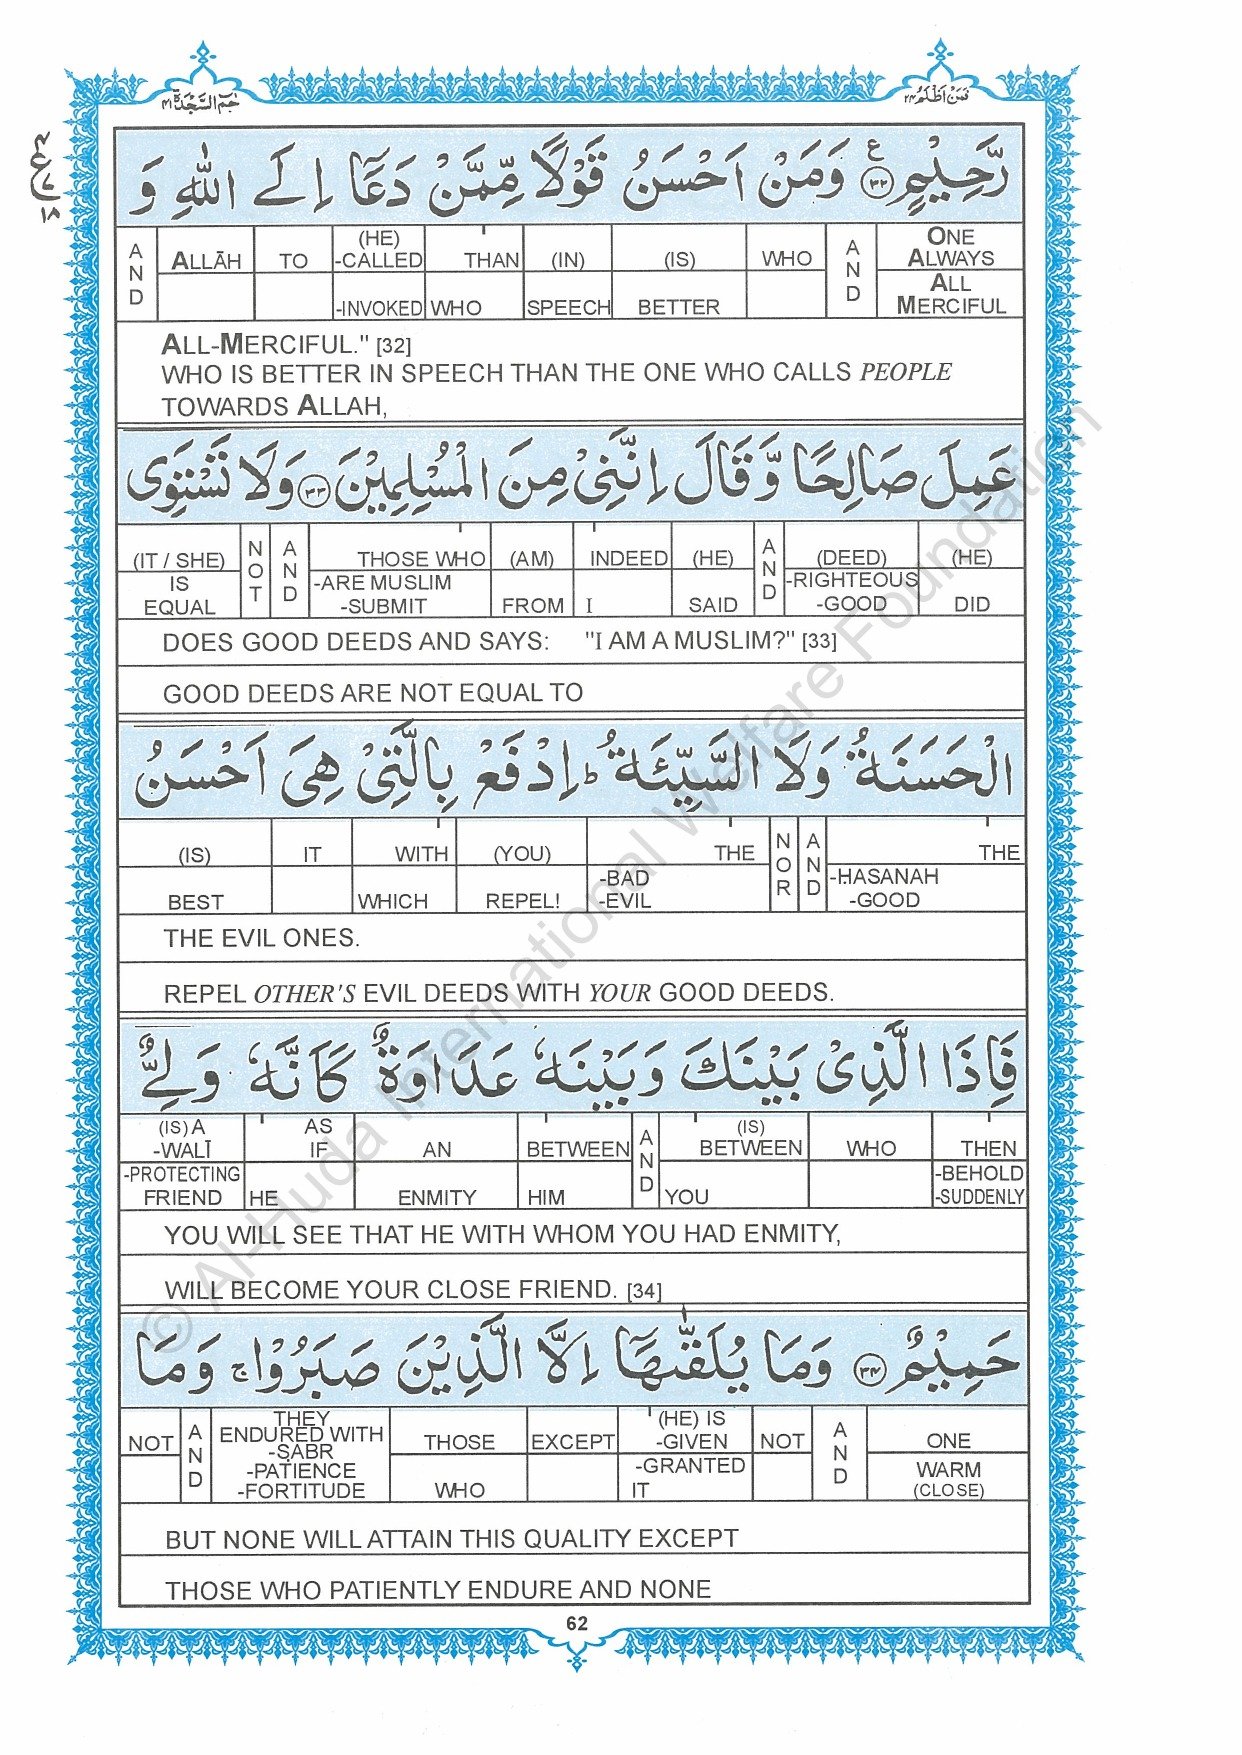 حٰمٓ السَّجْدَة ٤١
فَمَنْ اَظْلَمُ ٢٤
ع
١٨
رَّحِيْمٍ ﴿٣٢﴾ ع وَمَنْ اَحْسَنُ قَوْلًا مِّمَّنْ دَعَآ اِلَى اللّٰهِ وَ
AND | ALLĀH | TO | (HE) -CALLED -INVOKED | THAN WHO | (IN) SPEECH | (IS) BETTER | WHO | AND | ONE ALWAYS ALL MERCIFUL
ALL-MERCIFUL." [32]
WHO IS BETTER IN SPEECH THAN THE ONE WHO CALLS PEOPLE
TOWARDS ALLAH,
عَمِلَ صَالِحًا وَّ قَالَ اِنَّنِيْ مِنَ الْمُسْلِمِيْنَ ﴿٣٣﴾ وَلَا تَسْتَوِى
(IT / SHE) IS EQUAL | NOT | AND | THOSE WHO -ARE MUSLIM -SUBMIT | (AM) FROM | INDEED I | (HE) SAID | AND | (DEED) -RIGHTEOUS -GOOD | (HE) DID
DOES GOOD DEEDS AND SAYS: "I AM A MUSLIM?" [33]
GOOD DEEDS ARE NOT EQUAL TO
الْحَسَنَةُ وَلَا السَّيِّئَةُ ؕ اِدْفَعْ بِالَّتِيْ هِىَ اَحْسَنُ
(IS) BEST | IT | WITH WHICH | (YOU) REPEL! | THE -BAD -EVIL | NOR | AND | THE -HASANAH -GOOD
THE EVIL ONES.
REPEL OTHER'S EVIL DEEDS WITH YOUR GOOD DEEDS.
فَاِذَا الَّذِىْ بَيْنَكَ وَبَيْنَهٗ عَدَاوَةٌ كَاَنَّهٗ وَلِىٌّ
(IS) A -WALĪ -PROTECTING FRIEND | AS IF HE | AN ENMITY | BETWEEN HIM | AND | (IS) BETWEEN YOU | WHO | THEN -BEHOLD -SUDDENLY
YOU WILL SEE THAT HE WITH WHOM YOU HAD ENMITY,
WILL BECOME YOUR CLOSE FRIEND. [34]
حَمِيْمٌ ﴿٣٤﴾ وَمَا يُلَقّٰىهَآ اِلَّا الَّذِيْنَ صَبَرُوْا ۚ وَمَا
NOT | AND | THEY ENDURED WITH -ṢABR -PATIENCE -FORTITUDE | THOSE WHO | EXCEPT | (HE) IS -GIVEN -GRANTED IT | NOT | AND | ONE WARM (CLOSE)
BUT NONE WILL ATTAIN THIS QUALITY EXCEPT
THOSE WHO PATIENTLY ENDURE AND NONE
62
© Al-Huda International Welfare Foundation